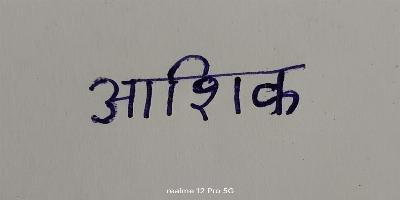 आशिक
realme 12 Pro 5G